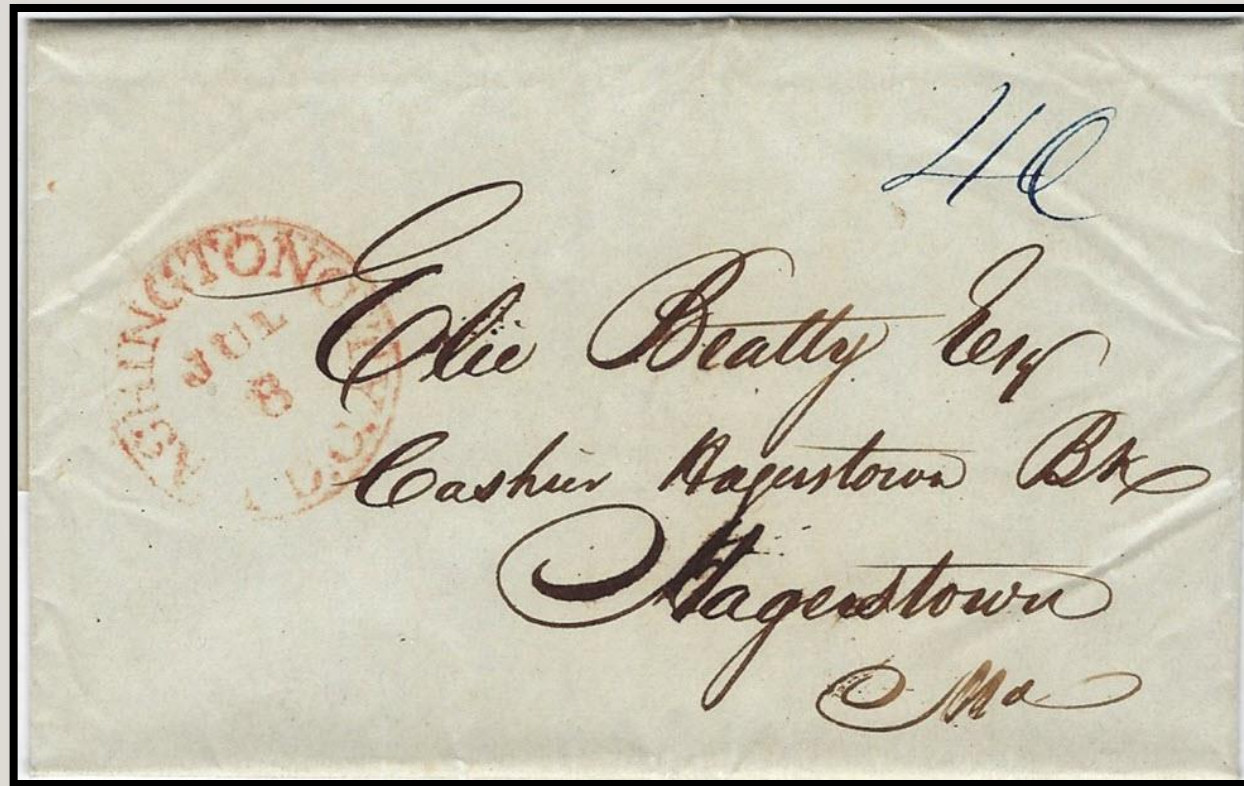 40
WASHINGTON CITY D.C.
JUL
8
Elie Beatty Esq
Cashier Hagerstown Bk
Hagerstown
Md